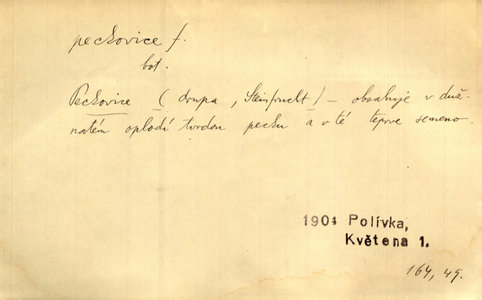 peckovice f.
bot.
Peckovice (drupa, Steinfrucht) – obsahuje v duž-
natém oplodí tvrdou pecku a v té teprve semeno.
1901 Polívka,
Květena 1.
164, 49.